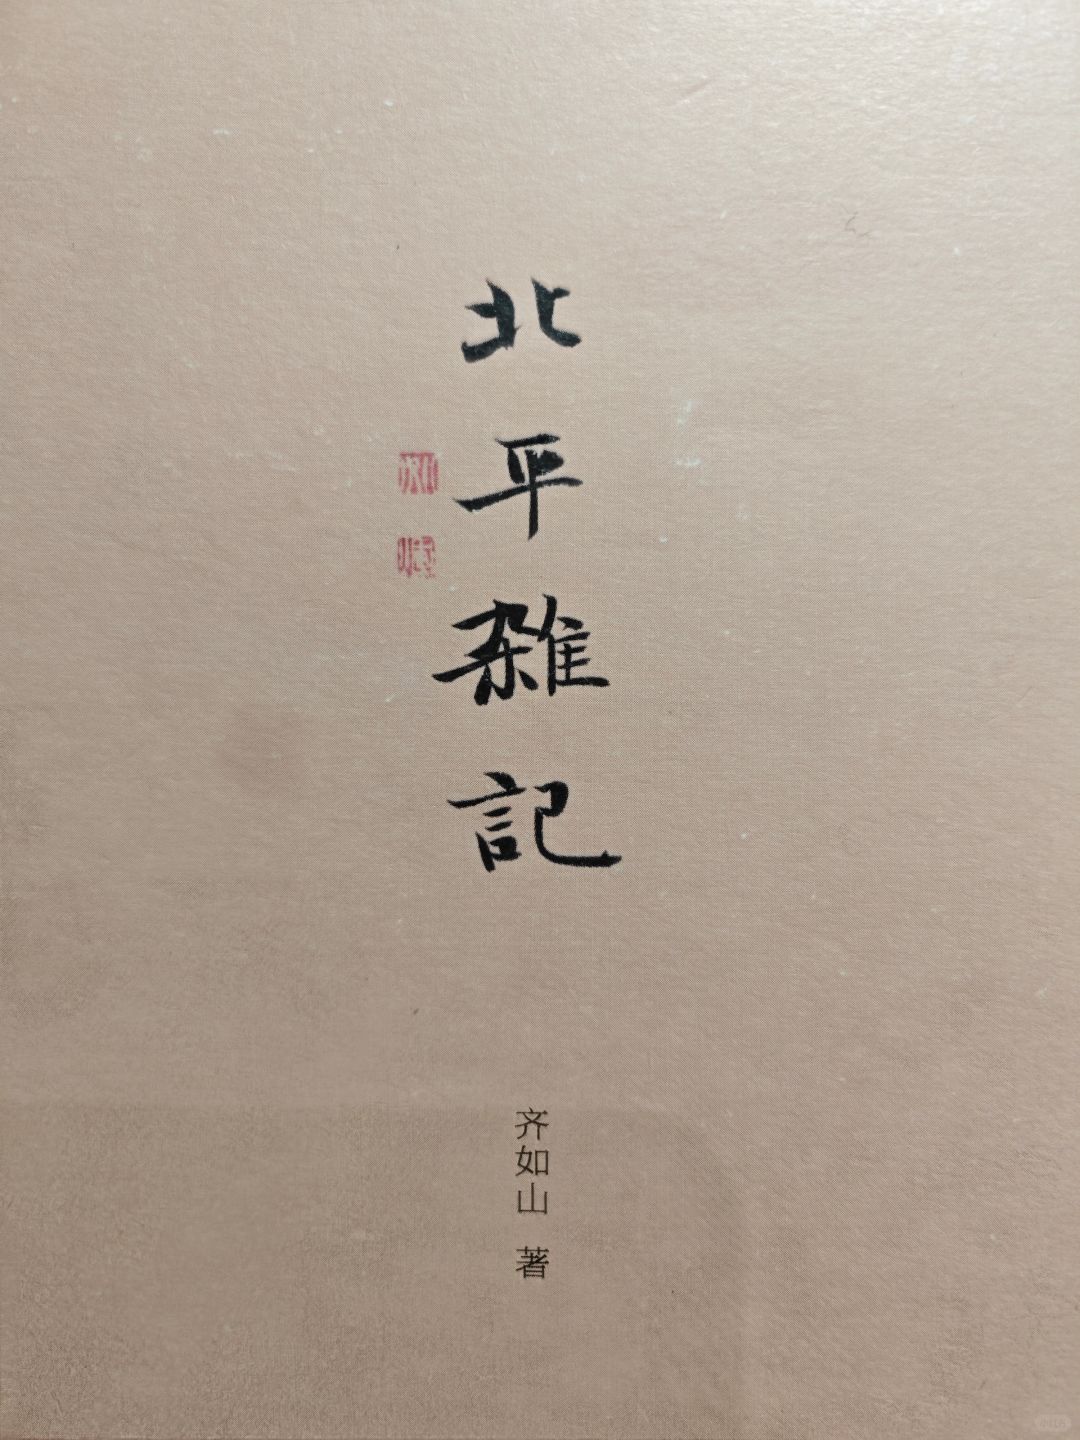 北平雜記
齐如山 著